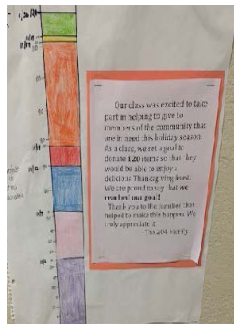 Our class was excited to take
part in helping to give to
members of the community that
are in need this holiday season.
As a class, we set a goal to
donate 120 items so that they
would be able to enjoy a
delicious Thanksgiving feast.
We are proud to say that we
reached our goal!
Thank you to the families that
helped to make this happen. We
truly appreciate it.